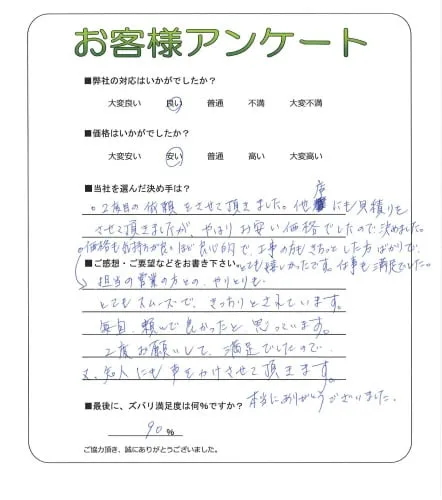 お客様アンケート
■弊社の対応はいかがでしたか?
大変良い 良い 普通 不満 大変不満
■価格はいかがでしたか?
大変安い 安い 普通 高い 大変高い
■当社を選んだ決め手は?
。2度目の依頼をさせて頂きました。他店にも見積りを
させて頂きましたが、やはりお安い価格でしたので決めました。
。価格も気持が良いほど良心的で、工事の方もきちっとした方ばかりで、
■ご感想・ご要望などをお書き下さい。
とても嬉しかったです。仕事も満足でした。
担当の営業の方との、やりとりも、
とてもスムーズで、きっちりとされています。
毎回、頼んで良かったと思っています。
2度お願いして、満足でしたので、
又、知人にも声をかけさせて頂きます。
本当にありがとうございました。
■最後に、ズバリ満足度は何%ですか?
90%
ご協力頂き、誠にありがとうございました。